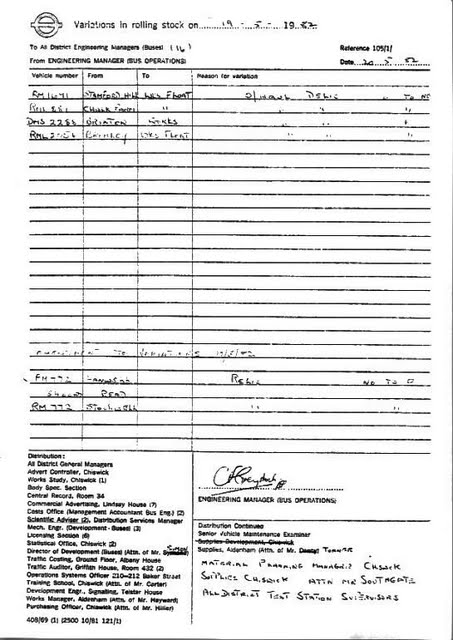 Variations in rolling stock on 19 - 5 - 1982
To All District Engineering Managers (Buses) (16)
Reference 105/1/
From ENGINEERING MANAGER (BUS OPERATIONS)
Date 20 5 82
Vehicle number From To Reason for variation
RM1671 STAMFORD HILL WKS FLOAT O/HAUL DELIC TO
RML 881 " " " "
DMS 2283 BRIXTON WORKS " " "
RML WKS FLOAT " " "
TO VARIATIONS
RELIC NO TO
ROAD
RM 772 STOCKWELL " "
Distribution:
All District General Managers
Advert Controller, Chiswick
Works Study, Chiswick (1)
Body Spec. Section
Central Record, Room 34
Commercial Advertising, Lindsey House (7)
Costs Office (Management Accountant Bus Eng.) (2)
Scientific Adviser (2), Distribution Services Manager
Mech. Engr. (Development - Buses) (3)
Licensing Section (6)
Statistical Office, Chiswick (2)
Director of Development (Buses) (Attn. of Mr.
Traffic Costing, Ground Floor, Albany House
Traffic Auditor, Griffith House, Room 432 (2)
Operations Systems Officer 210–212 Baker Street
Training School, Chiswick (Attn. of Mr. Carter)
Development Engr., Signalling, Telstar House
Works Manager, Aldenham (Attn. of Mr. Hayward)
Purchasing Officer, Chiswick (Attn. of Mr. Hiller)
ENGINEERING MANAGER (BUS OPERATIONS)
Distribution Continued
Senior Vehicle Maintenance Examiner
Supplies Development, Chiswick
Supplies, Aldenham (Attn. of Mr.
MATERIAL PLANNING MANAGER CHISWICK
SUPPLIES CHISWICK ATTN MR SOUTHGATE
ALL DISTRICT TEST STATION SUPERVISORS
408/69 (1) (2500 10/81 121/1)